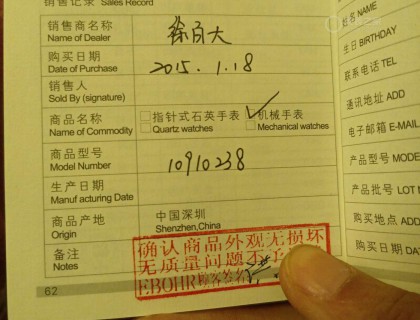 销售记录 Sales Record
销售商名称 徐百大
Name of Dealer
购买日期 2015.1.18
Date of Purchase
销售人
Sold By (signature)
商品名称 指针式石英手表 机械手表
Name of Commodity Quartz watches Mechanical watches
商品型号 10910238
Model Number
生产日期
Manufacturing Date
商品产地 中国深圳
Origin Shenzhen,China
备注
Notes
确认商品外观无损坏
无质量问题
EBOHR顾客签名
62
姓名 NAME
生日 BIRTHDAY
联系电话 TEL
通讯地址 ADD
电子邮箱 E-MAIL
产品型号 MODE
产品批号 LOT
购买地点 ADD
购买日期 DA